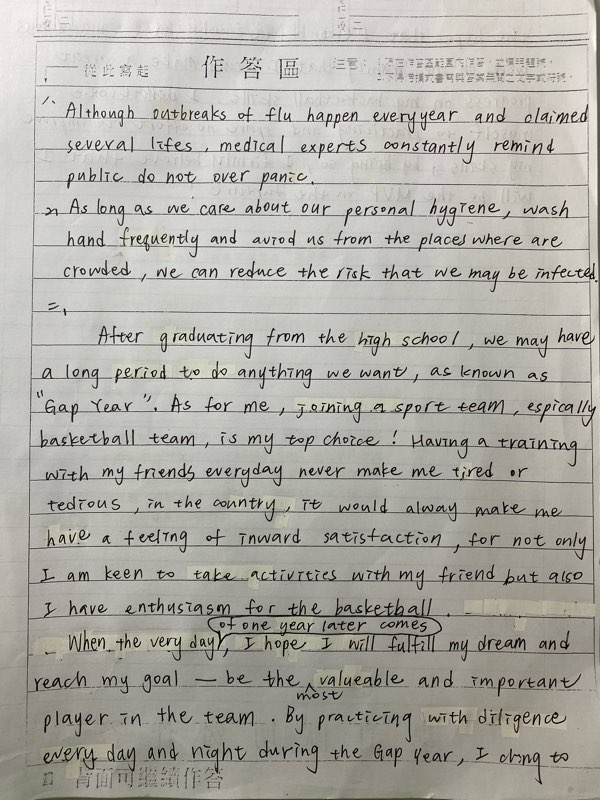 從此寫起 作答區 注意：1.限在作答區範圍內作答，並標明題號。
2.不得
1、Although outbreaks of flu happen everyyear and claimed
several lifes, medical experts constantly remind
public do not over panic.
2、As long as we care about our personal hygiene, wash
hand frequently and aviod us from the places where are
crowded, we can reduce the risk that we may be infected.
二、
After graduating from the high school, we may have
a long period to do anything we want, as known as
"Gap Year". As for me, joining a sport team, espically
basketball team, is my top choice! Having a training
with my friends everyday never make me tired or
tedious, in the country, it would alway make me
have a feeling of inward satisfaction, for not only
I am keen to take activities with my friend but also
I have enthusiasm for the basketball.
of one year later comes
When the very day, I hope I will fulfill my dream and
reach my goal — be the valueable and important
most
player in the team. By practicing with diligence
every day and night during the Gap Year, I to
背面可繼續作答